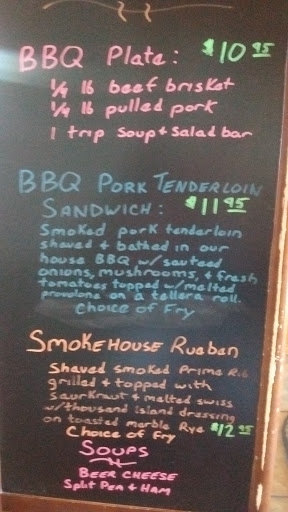 BBQ Plate: $10.95
1/4 lb beef brisket
1/4 lb pulled pork
1 trip soup & salad bar
BBQ PORK TENDERLOIN
SANDWICH: $11.95
Smoked pork tenderloin
shaved & bathed in our
house BBQ w/ sauteed
onions, mushrooms, & fresh
tomatoes topped w/ melted
provolone on a tellera roll.
Choice of Fry
SMOKEHOUSE Rueben
Shaved smoked Prime Rib
grilled & topped with
saurkraut & melted swiss
w/ thousand island dressing
on toasted marble Rye $12.95
Choice of Fry
SOUPS
BEER CHEESE
Split Pea & HAM